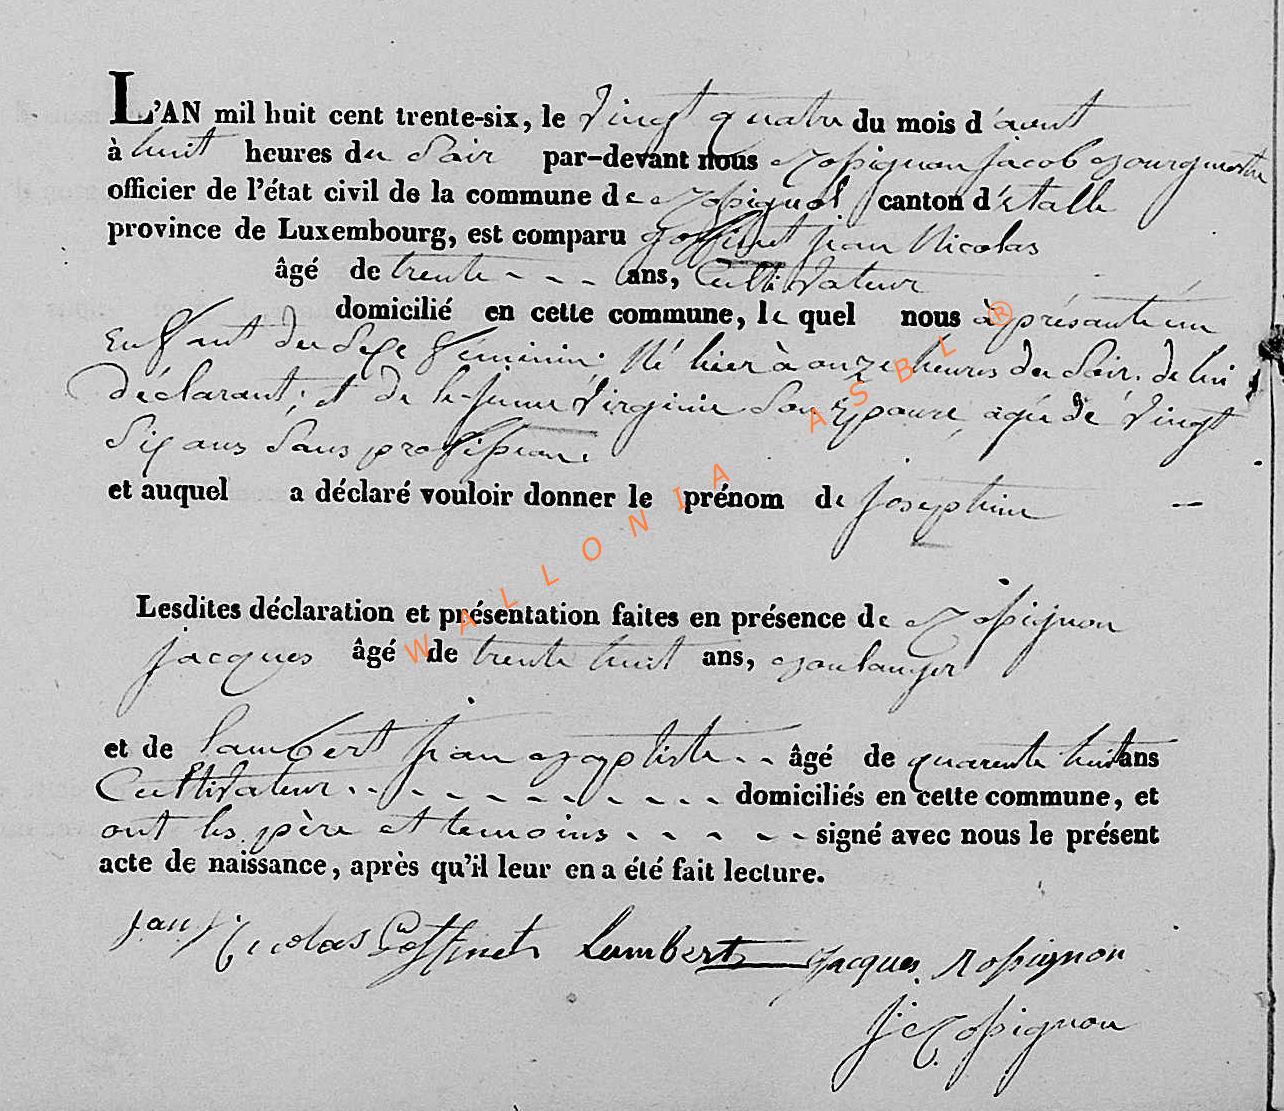 L'AN mil huit cent trente-six, le Vingt quatre du mois d'aout
à huit heures du Soir par-devant nous Rossignon Jacob Bourgmestre
officier de l'état civil de la commune de Rossignol canton d'Etalle
province de Luxembourg, est comparu Goffinet jean Nicolas
âgé de trente - - - ans, Cultivateur
domicilié en cette commune, le quel nous à présanté un
Enffant du Sexe Féminin; Né hier à onze heures du Soir. de lui
déclarant; et de Virginie Son Epouse, agée de Vingt
Six ans Sans proffission.
et auquel a déclaré vouloir donner le prénom de Josephine -
Lesdites déclaration et présentation faites en présence de Rossignon
jacques âgé de trente huit ans, Boulanger
et de Lambert jean Baptiste - - âgé de quarente huit ans
Cultivateur - - - - - - - - - - domiciliés en cette commune, et
ont les père et temoins - - - - - signé avec nous le présent
acte de naissance, après qu'il leur en a été fait lecture.
jean Nicolas Goffinet Lambert Jacques Rossignon
J Rossignon
WALLONIA ASBL ®